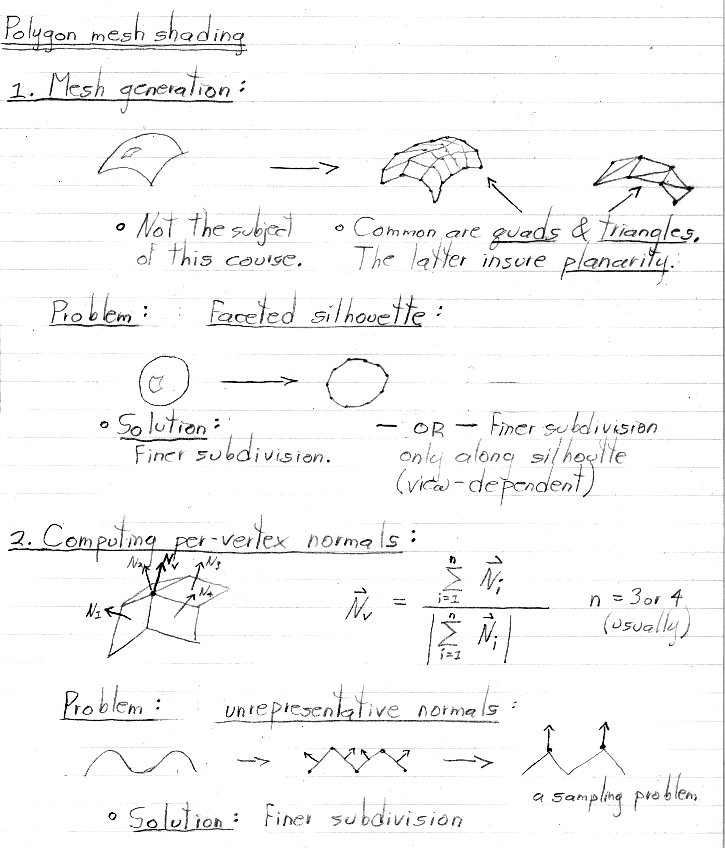 Polygon mesh shading
1. Mesh generation:
• Not the subject
of this course.
• Common are quads & triangles.
The latter insure planarity.
Problem: Faceted silhouette:
• Solution:
Finer subdivision.
— OR — Finer subdivision
only along silhoutte
(view-dependent)
2. Computing per-vertex normals:
N1 N2 Nv N3 N4
N⃗v = ∑ i=1 n N⃗i / |∑ i=1 n N⃗i|
n = 3 or 4
(usually)
Problem: unrepresentative normals:
a sampling problem
• Solution: Finer subdivision